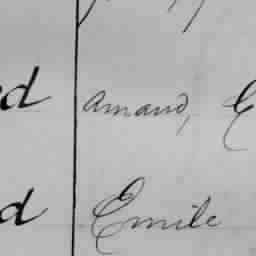 d Amand,
d Emile